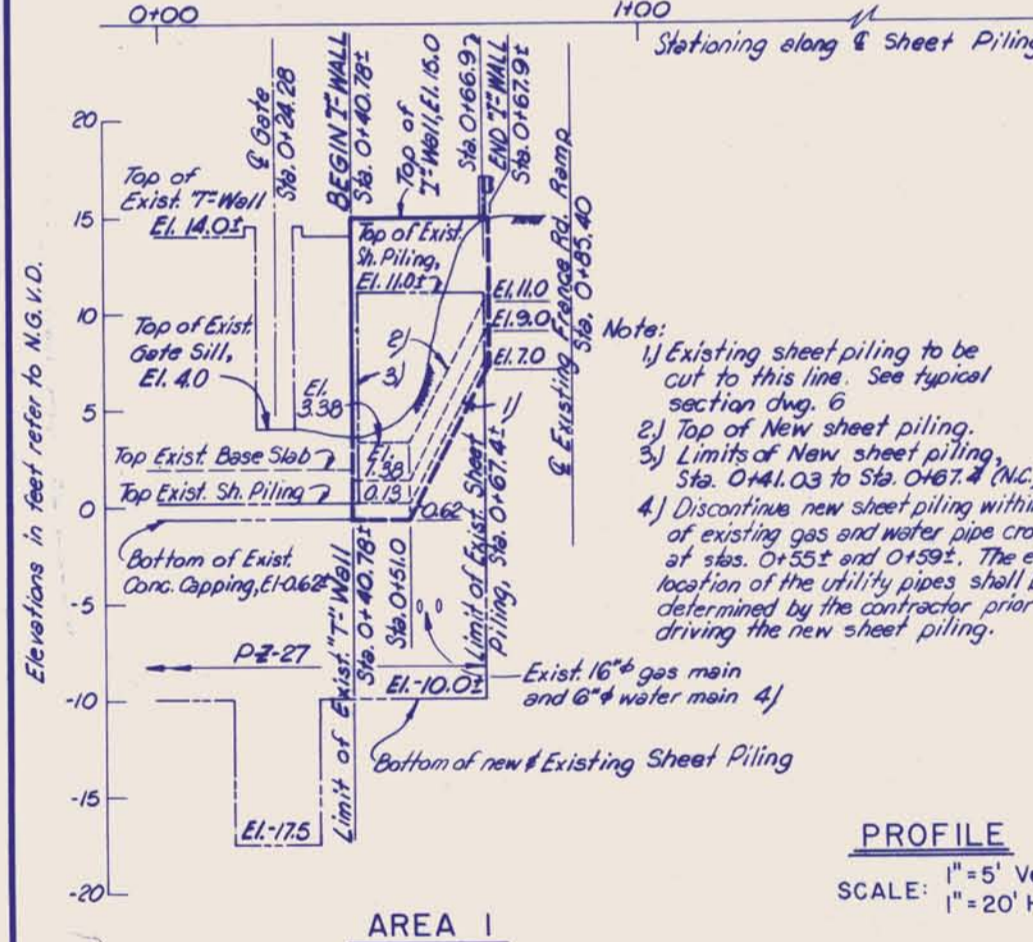 0+00
1+00
Stationing along ℄ Sheet Piling
℄ Gate
Sta. 0+24.28
BEGIN "I"-WALL
Sta. 0+40.78±
Top of
"I"-Wall, El. 15.0
Sta. 0+66.9
END "I"-WALL
Sta. 0+67.9±
℄ Existing France Rd. Ramp
Sta. 0+85.40
Elevations in feet refer to N.G.V.D.
20
15
10
5
0
-5
-10
-15
-20
Top of
Exist. "T"-Wall
El. 14.0±
Top of Exist.
Sh. Piling,
El. 11.0±
El. 11.0
El. 9.0
El. 7.0
Top of Exist.
Gate Sill,
El. 4.0
2)
3)
1)
El.
3.38
El.
1.38
0.13
-0.62
Top Exist. Base Slab
Top Exist. Sh. Piling
Bottom of Exist.
Conc. Capping, El-0.62±
Limit of Exist. "T"-Wall
Sta. 0+40.78±
Sta. 0+51.0
Limit of Exist. Sheet
Piling, Sta. 0+67.4±
PZ-27
El. -10.0±
El. -17.5
Exist. 16"φ gas main
and 6"φ water main 4)
Bottom of new & Existing Sheet Piling
Note:
1.) Existing sheet piling to be
cut to this line. See typical
section dwg. 6
2.) Top of New sheet piling.
3.) Limits of New sheet piling,
Sta. 0+41.03 to Sta. 0+67.4 (N.C.
4.) Discontinue new sheet piling within
of existing gas and water pipe cro
at stas. 0+55± and 0+59±. The e
location of the utility pipes shall b
determined by the contractor prior
driving the new sheet piling.
PROFILE
SCALE: 1" = 5' Ve
1" = 20' H
AREA 1